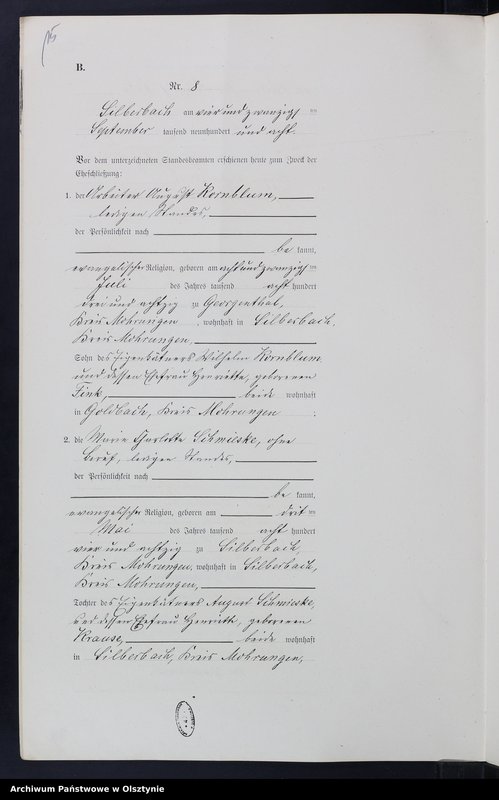 15
B.
Nr. 8
Silberbach am vier und zwanzigsten
September tausend neunhundert und acht.
Vor dem unterzeichneten Standesbeamten erschienen heute zum Zweck der
Eheschließung:
1. der Arbeiter August Kornblum,
ledigen Standes,
der Persönlichkeit nach
be kannt,
evangelischer Religion, geboren am acht und zwanzigsten
Juli des Jahres tausend acht hundert
drei und achtzig zu Georgenthal,
Kreis Mohrungen, wohnhaft in Silberbach,
Kreis Mohrungen,
Sohn des Eigenkätners Wilhelm Kornblum
und dessen Ehefrau Henriette, geborenen
Fink, beide wohnhaft
in Goldbach, Kreis Mohrungen ;
2. die Marie Charlotte Schmieske, ohne
Beruf, ledigen Standes,
der Persönlichkeit nach
be kannt,
evangelischer Religion, geboren am dritten
Mai des Jahres tausend acht hundert
vier und achtzig zu Silberbach,
Kreis Mohrungen, wohnhaft in Silberbach,
Kreis Mohrungen,
Tochter des Eigenkätners August Schmieske,
und dessen Ehefrau Henriette, geborenen
Krause, beide wohnhaft
in Silberbach, Kreis Mohrungen.
Archiwum Państwowe w Olsztynie